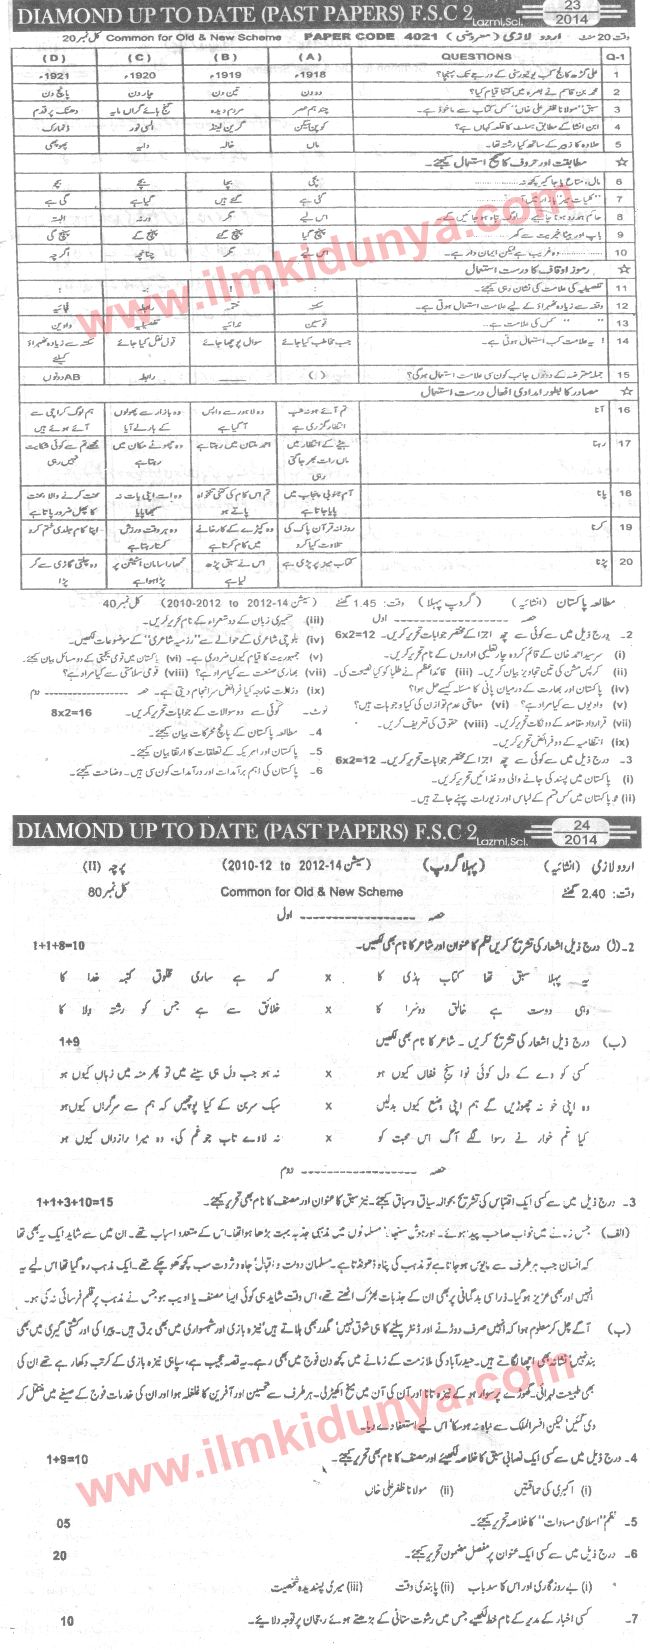 DIAMOND UP TO DATE (PAST PAPERS) F.S.C 2 Lazmi,Sci. 23 2014
وقت 20 منٹ اردو لازمی (معروضی) PAPER CODE 4021 Common for Old & New Scheme کل نمبر 20
Q-1 QUESTIONS (A) (B) (C) (D)
1 علی گڑھ کالج کب یونیورسٹی کے درجے تک پہنچا؟ 1918ء 1919ء 1920ء 1921ء
2 محمد بن قاسم نے بصرہ میں کتنا قیام کیا؟ دو دن تین دن چار دن پانچ دن
3 سبق "مولانا ظفر علی خاں" کس کتاب سے ماخوذ ہے۔ چند ہم عصر مردم دیدہ گنج ہائے گراں مایہ
4 ابن انشا کے مطابق ہملٹ کا قلعہ کہاں ہے؟ کوپن ہیگن گرین لینڈ ڈنمارک
5 ماں خالہ دایہ پھوپھی
☆ مطابقت اور حروف کا صحیح استعمال کیجئے۔
6 بچی بچا بچے
7 گئی ہے گئے ہیں گیا ہے کی ہے
8 اس لیے مگر ورنہ البتہ
9 باپ اور بیٹا خیریت سے گھر پہنچ گیا پہنچ گئے پہنچ گی
10 وہ غریب ہے لیکن ایمان دار ہے۔ اس لیے مگر چنانچہ اگرچہ
☆ رموز اوقاف کا درست استعمال
11 تفصیلیہ کی علامت کی نشان دہی کیجئے۔
12 وقفہ سے زیادہ ٹھہراؤ کے لیے علامت استعمال ہوتی ہے۔ سکتہ ختمہ رابطہ فجائیہ
13 کس کی علامت ہے۔ قوسین ندائیہ تفصیلیہ واوین
14 ! یہ علامت کب استعمال ہوتی ہے۔ جب مخاطب کیا جائے سوال پوچھا جائے قول نقل کیا جائے سکتہ سے زیادہ ٹھہراؤ کیلئے
15 جملہ معترضہ کے دونوں جانب کون سی علامت استعمال ہوگی؟ ( ) ___ رابطہ AB دونوں
☆ مصادر کا بطور امدادی افعال درست استعمال
16 آنا وہ لاہور سے واپس آ گیا ہے وہ بازار سے پھولوں کے ہار لے آیا ہم لوگ کراچی سے آئے ہوئے ہیں
17 رہنا بیٹے کے انتظار میں ماں رات بھر جاگتی رہی احمد ملتان میں رہتا ہے وہ چھوٹے مکان میں رہتا ہے مجھے تم سے کوئی شکایت نہیں رہی
18 پانا آم جنوبی پنجاب میں پایا جاتا ہے تم اس کام کی کتنی تنخواہ پاتے ہو وہ اسے اپنی بات نہ سمجھا پایا محنت کرنے والا محنت کا پھل ضرور پاتا ہے
19 کرنا روزانہ قرآن پاک کی تلاوت کیا کرو وہ کپڑے کے کارخانے میں کام کرتا ہے وہ ہر وقت ورزش کرتا رہتا ہے اپنا کام جلدی ختم کرو
20 پڑنا کتاب میز پر پڑی ہے اس نے سبق پڑھ لیا ہے تمھارا سامان اسٹیشن پر پڑا ہوا ہے وہ چلتی گاڑی سے گر پڑا
مطالعہ پاکستان (انشائیہ) (گروپ پہلا) وقت: 1.45 گھنٹے (سیشن 14-2012 to 2010-2012) کل نمبر 40
حصہ اول
2۔ درج ذیل میں سے کوئی سے چھ اجزا کے مختصر جوابات تحریر کریں۔ 6x2=12
(i) سرسید احمد خان کے قائم کردہ چار تعلیمی اداروں کے نام تحریر کریں۔
(ii) کرپس مشن کی تین تجاویز بیان کریں۔ (iii) قائداعظم نے طلبا کو کیا نصیحت کی۔
(iv) پاکستان اور بھارت کے درمیان پانی کا مسئلہ کیسے حل ہوا؟
(v) وادیوں سے کیا مراد ہے؟ (vi) معاشی عدم توازن کی کیا وجوہات ہیں؟
(vii) قرارداد مقاصد کے دو نکات تحریر کریں۔ (viii) حقوق کی تعریف کریں۔
(ix) انتظامیہ کے دو فرائض تحریر کریں۔
3۔ درج ذیل میں سے کوئی سے چھ اجزا کے مختصر جوابات تحریر کریں۔ 6x2=12
(i) پاکستان میں پسند کی جانے والی دو غذائیں تحریر کریں۔
(ii) پاکستان میں کس قسم کے لباس اور زیورات پہنے جاتے ہیں۔
(iii) کشمیری زبان کے دو شعراء کے نام تحریر کریں۔
(iv) بلوچی شاعری کے حوالے سے "رزمیہ شاعری" کے موضوعات لکھیں۔
(v) جمہوریت کا قیام کیوں ضروری ہے۔ (vi) پاکستان میں قومی یکجہتی کے دو مسائل بیان کیجئے۔
(vii) بھاری صنعت سے کیا مراد ہے؟ (viii) قومی سلامتی سے کیا مراد ہے؟
(ix) وزارت خارجہ کیا فرائض سرانجام دیتی ہے۔ حصہ دوم
نوٹ۔ کوئی سے دو سوالات کے جوابات تحریر کریں۔ 8x2=16
4۔ مطالعہ پاکستان کے پانچ محرکات بیان کیجئے۔
5۔ پاکستان اور امریکہ کے تعلقات کا ارتقا بیان کیجئے۔
6۔ پاکستان کی اہم برآمدات اور درآمدات کون سی ہیں۔ وضاحت کیجئے۔
DIAMOND UP TO DATE (PAST PAPERS) F.S.C 2 Lazmi,Sci. 24 2014
اردو لازمی (انشائیہ) (پہلا گروپ) (سیشن 14-2012 to 12-2010) پرچہ (II)
وقت: 2.40 گھنٹے Common for Old & New Scheme کل نمبر 80
حصہ اول
2۔ (ا) درج ذیل اشعار کی تشریح کریں نظم کا عنوان اور شاعر کا نام بھی لکھیں۔ 1+1+8=10
یہ پہلا سبق تھا کتاب ہدی کا x کہ ہے ساری مخلوق کنبہ خدا کا
وہی دوست ہے خالق دوسرا کا x خلائق سے ہے جس کو رشتہ ولا کا
(ب) درج ذیل اشعار کی تشریح کریں۔ شاعر کا نام بھی لکھیں 1+9
کسی کو دے کے دل کوئی نوا سنج فغاں کیوں ہو x نہ ہو جب دل ہی سینے میں تو پھر منہ میں زباں کیوں ہو
وہ اپنی خو نہ چھوڑیں گے ہم اپنی وضع کیوں بدلیں x سبک سر بن کے کیا پوچھیں کہ ہم سے سرگراں کیوں ہو
کیا غم خوار نے رسوا لگے آگ اس محبت کو x نہ لاوے تاب جو غم کی، وہ میرا رازداں کیوں ہو
حصہ دوم
3۔ درج ذیل میں سے کسی ایک اقتباس کی تشریح بحوالہ سیاق و سباق کیجئے۔ نیز سبق کا عنوان اور مصنف کا نام بھی تحریر کیجئے۔ 1+1+3+10=15
(الف) جس زمانے میں نواب صاحب پیدا ہوئے۔ اور ہوش سنبھالا مسلمانوں میں مذہبی جذبہ بہت بڑھا ہوا تھا۔ اس کے متعدد اسباب تھے۔ ان میں سے شاید ایک یہ بھی تھا
کہ انسان جب ہر طرف سے مایوس ہو جاتا ہے تو مذہب کی پناہ ڈھونڈتا ہے۔ مسلمان دولت و اقبال، جاہ و ثروت سب کچھ کھو چکے تھے۔ ایک مذہب رہ گیا تھا اس لیے یہ
انہیں اور بھی عزیز ہو گیا۔ ذرا سی بدگمانی پر بھی ان کے جذبات بھڑک اٹھتے تھے، اس وقت شاید ہی کوئی ایسا مصنف یا ادیب ہو جس نے مذہب پر قلم فرسائی نہ کی ہو۔
(ب) آگے چل کر معلوم ہوا کہ انہیں صرف دوڑنے اور ڈنٹر پیلنے کا ہی شوق نہیں، مگدر بھی ہلاتے ہیں، نیزہ بازی اور شہسواری میں بھی برق ہیں۔ پیراکی اور کشتی گیری میں بھی
بند نہیں، نشانہ بھی اچھا لگاتے ہیں۔ حیدرآباد کی ملازمت کے زمانے میں کچھ دن فوج میں بھی رہے۔ یہ قصہ عجیب ہے، سپاہی نیزہ بازی کے کرتب دکھا رہے تھے ان کی
بھی طبیعت لہرائی۔ گھوڑے پر سوار ہو کے نیزہ تانا اور آن کی آن میں میخ اکھیڑ لی۔ ہر طرف سے تحسین اور آفرین کا غلغلہ ہوا اور ان کی خدمات فوج کے صیغے میں منتقل کر
دی گئیں، لیکن افسر الملک سے نباہ نہ ہو سکا، اس لیے استعفا دے دیا۔
4۔ درج ذیل میں سے کسی ایک نصابی سبق کا خلاصہ لکھیئے اور مصنف کا نام بھی تحریر کیجئے۔ 1+9=10
(i) اکبری کی حماقتیں (ii) مولانا ظفر علی خاں
5۔ نظم "اسلامی مساوات" کا خلاصہ تحریر کیجئے۔ 05
6۔ درج ذیل میں سے کسی ایک عنوان پر مفصل مضمون تحریر کیجئے۔ 20
(i) بے روزگاری اور اس کا سدباب (ii) پابندی وقت (iii) میری پسندیدہ شخصیت
7۔ کسی اخبار کے مدیر کے نام خط لکھیے جس میں رشوت ستانی کے بڑھتے ہوئے رجحان پر توجہ دلائیے۔ 10
www.ilmkidunya.com
www.ilmkidunya.com